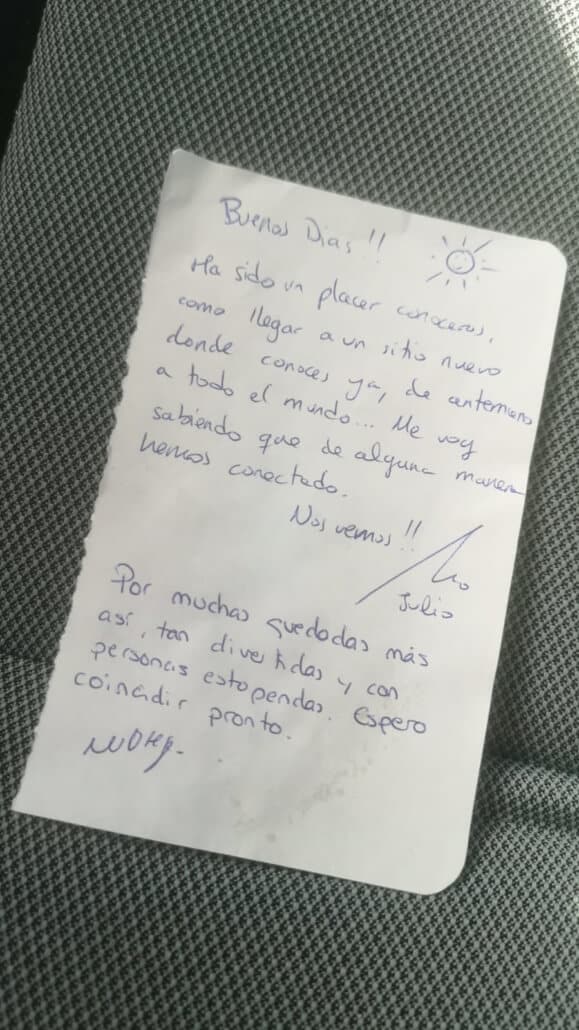 Buenos Dias!!
Ha sido un placer conoceros,
como llegar a un sitio nuevo
donde conoces ya, de antemano
a todo el mundo... Me voy
sabiendo que de alguna manera
hemos conectado.
Nos vemos!!
Julio
Por muchas quedadas más
así, tan divertidas y con
personas estopendas. Espero
coincidir pronto.